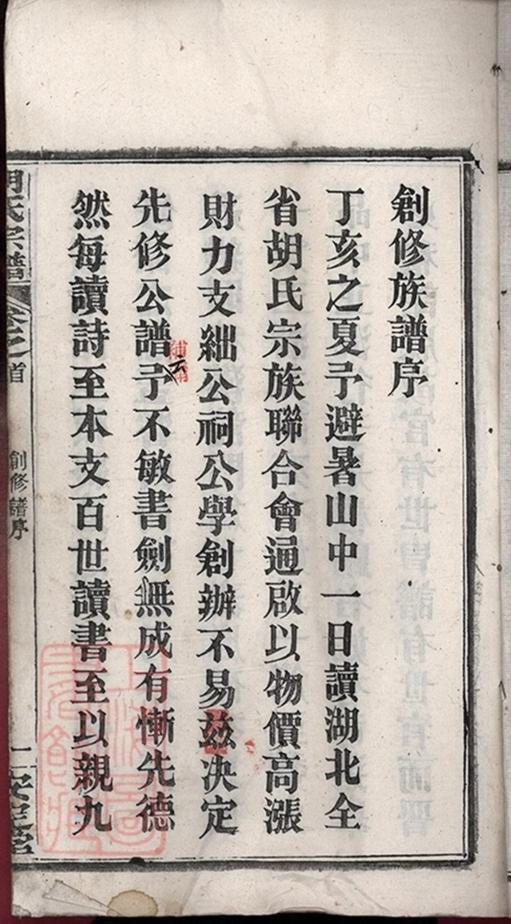 創修族譜序
丁亥之夏予避暑山中一日讀湖北全
省胡氏宗族聯合會通啟以物價高漲
財力支絀公祠公學創辦不易茲决定
先修公譜予不敏書劍無成有慚先德
云
然每讀詩至本支百世讀書至以親九
胡氏宗譜
卷之首
創修譜序
一
安定堂